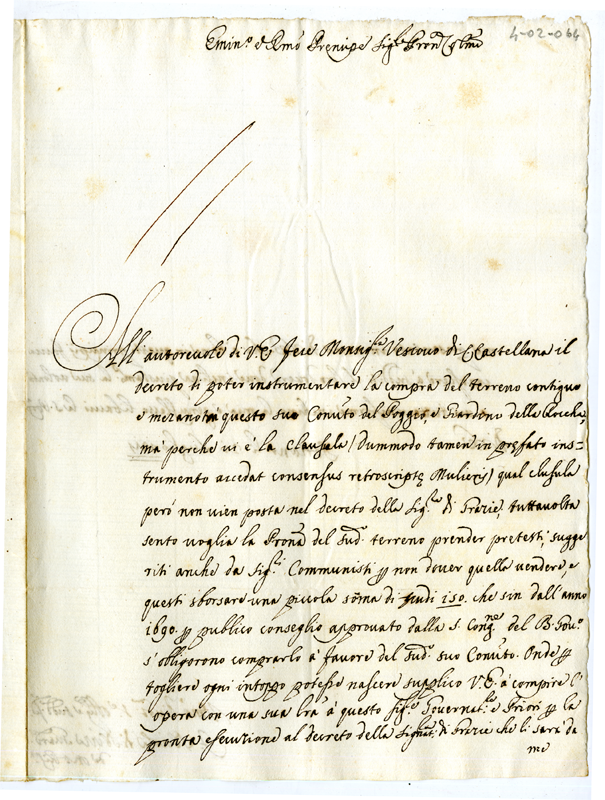 4-02-064
Emin.º e Rmo Prenipe Sig.re Pron Colmo
All' autorevole di V.E. fece Monsig.re Vescovo di CCastellana il
decreto di poter instrumentare la compra del terreno contiguo
e mezano trà questo suo Conuto del Poggio, e Giardino della Rocha,
mà perche ui é la clausula (Dummodo tamen in prefato ins=
trumento accedat consensus retroscriptæ Mulieris) qual clusula
peró non uien posta nel decreto della Sig.ra di Grazie, tuttauolta
sento voglia la Prona del Sud.º terreno prender pretesti, sugge
riti anche da Sig.ri Communisti p non douer quella vendere, e
questi sborsare una piccola soma di scudi 150. che sin dall' anno
1690. p publico conseglio approuato dalla S. Cong.ne del B. Gou.º
s' obligorono comprarlo á fauore del Sud.º suo Conuto. Onde p
togliere ogni intoppo potesse nascere supplico V.E. á compire l'
opera con una sua lra á questo Sig.re Gouernat.re e Priori p la
pronta esecuzione al decreto della Signat.ra di Grazie che li sará da
me